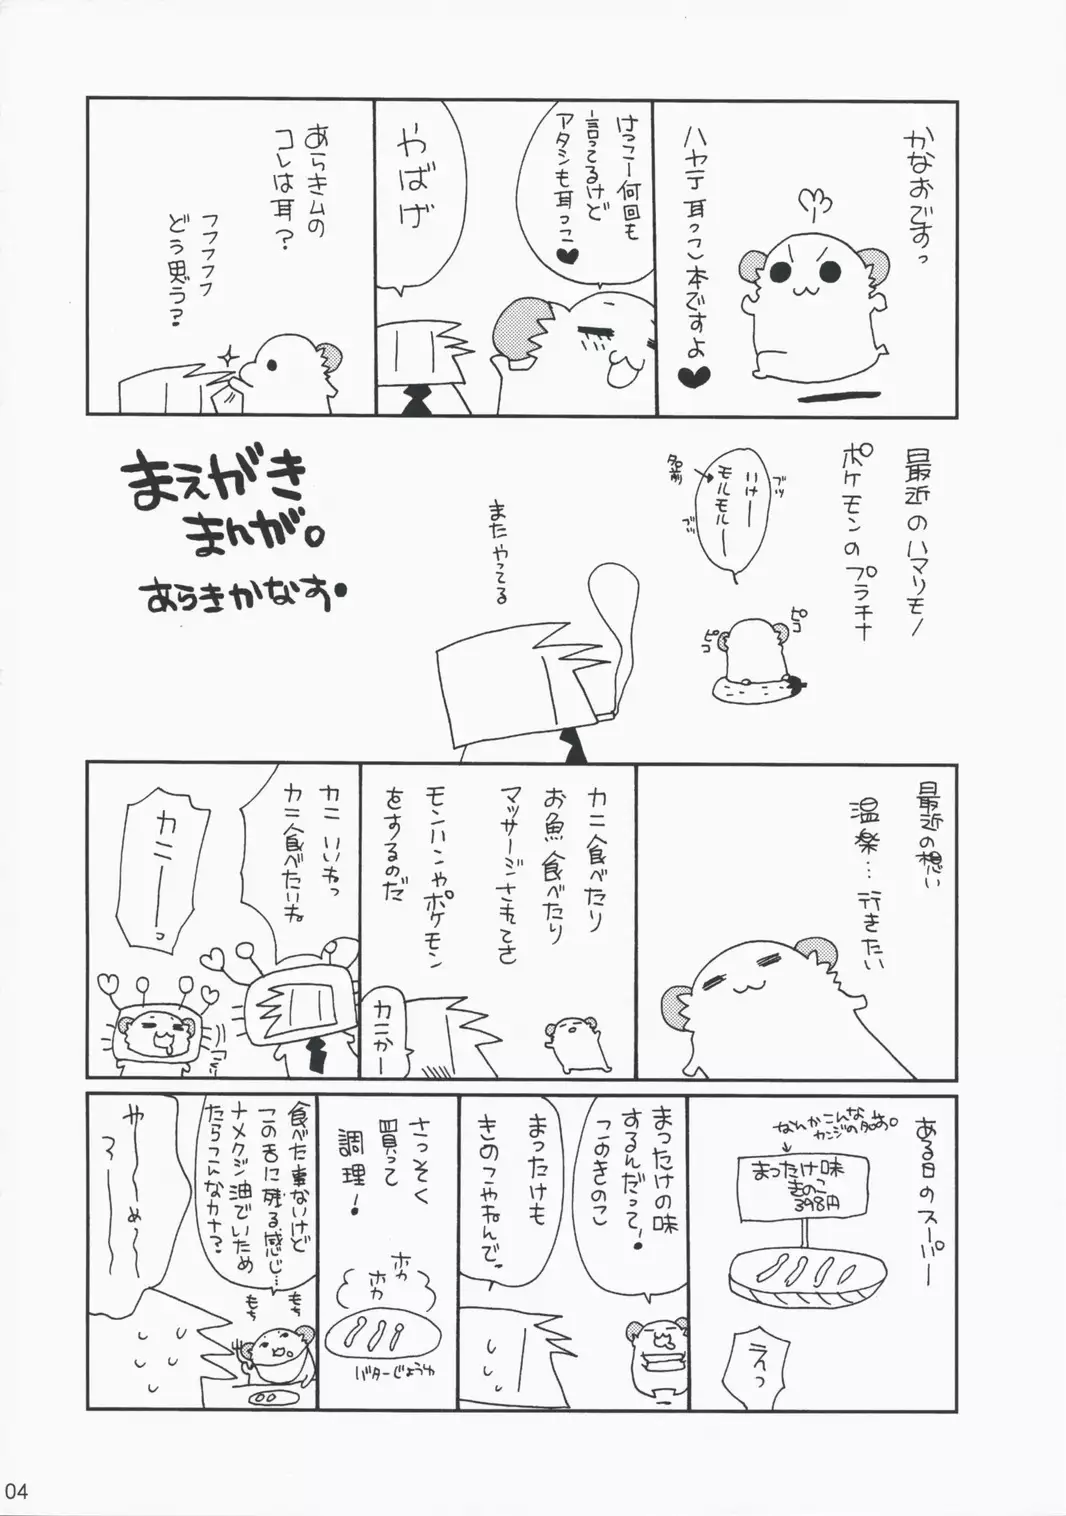 かなおですっ
ハヤテ耳っこ本ですよ♥
けっこー何回も
言ってるけど
アタシも耳っこ♥
やばげ
あらきムの
コレは耳?
フフフフフ
どう思う?
まえがき
まんが。
あらきかなお。
最近のハマリモノ
ポケモンのプラチナ
いけー
モルモルー
名前
ブツ
ブツ
ピコ
ピコ
またやってる
最近の想い
温楽…行きたい
カニ食べたり
お魚食べたり
マッサージされてさ
モンハンやポケモン
をするのだ
カニかー
カニいいねっ
カニ食べたいね
カニーーっ
ある日のスーパー
なんかこんな
カンジの名前。
まったけ味
きのこ
398円
えっ
まったけの味
するんだって!
このきのこ
まったけも
きのこやねんで。
さっそく
買って
調理!
ホカ
ホカ
バターじょうゆ
食べた事ないけど
この舌に残る感じ…
ナメクジ油でいため
たらこんなカナ?
もち
もち
やーめーーー